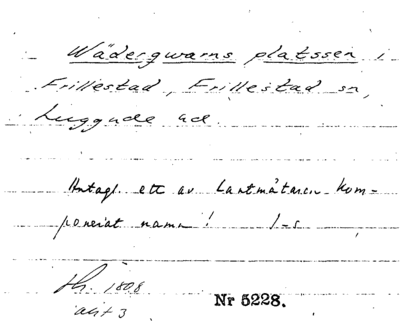 Wädergwarns platssen i
Frillestad, Frillestad sn,
Luggude hd.
Antagl. ett av Lantmätaren kom-
ponerat namn! I-s
1808
akt 3
Nr 5228.